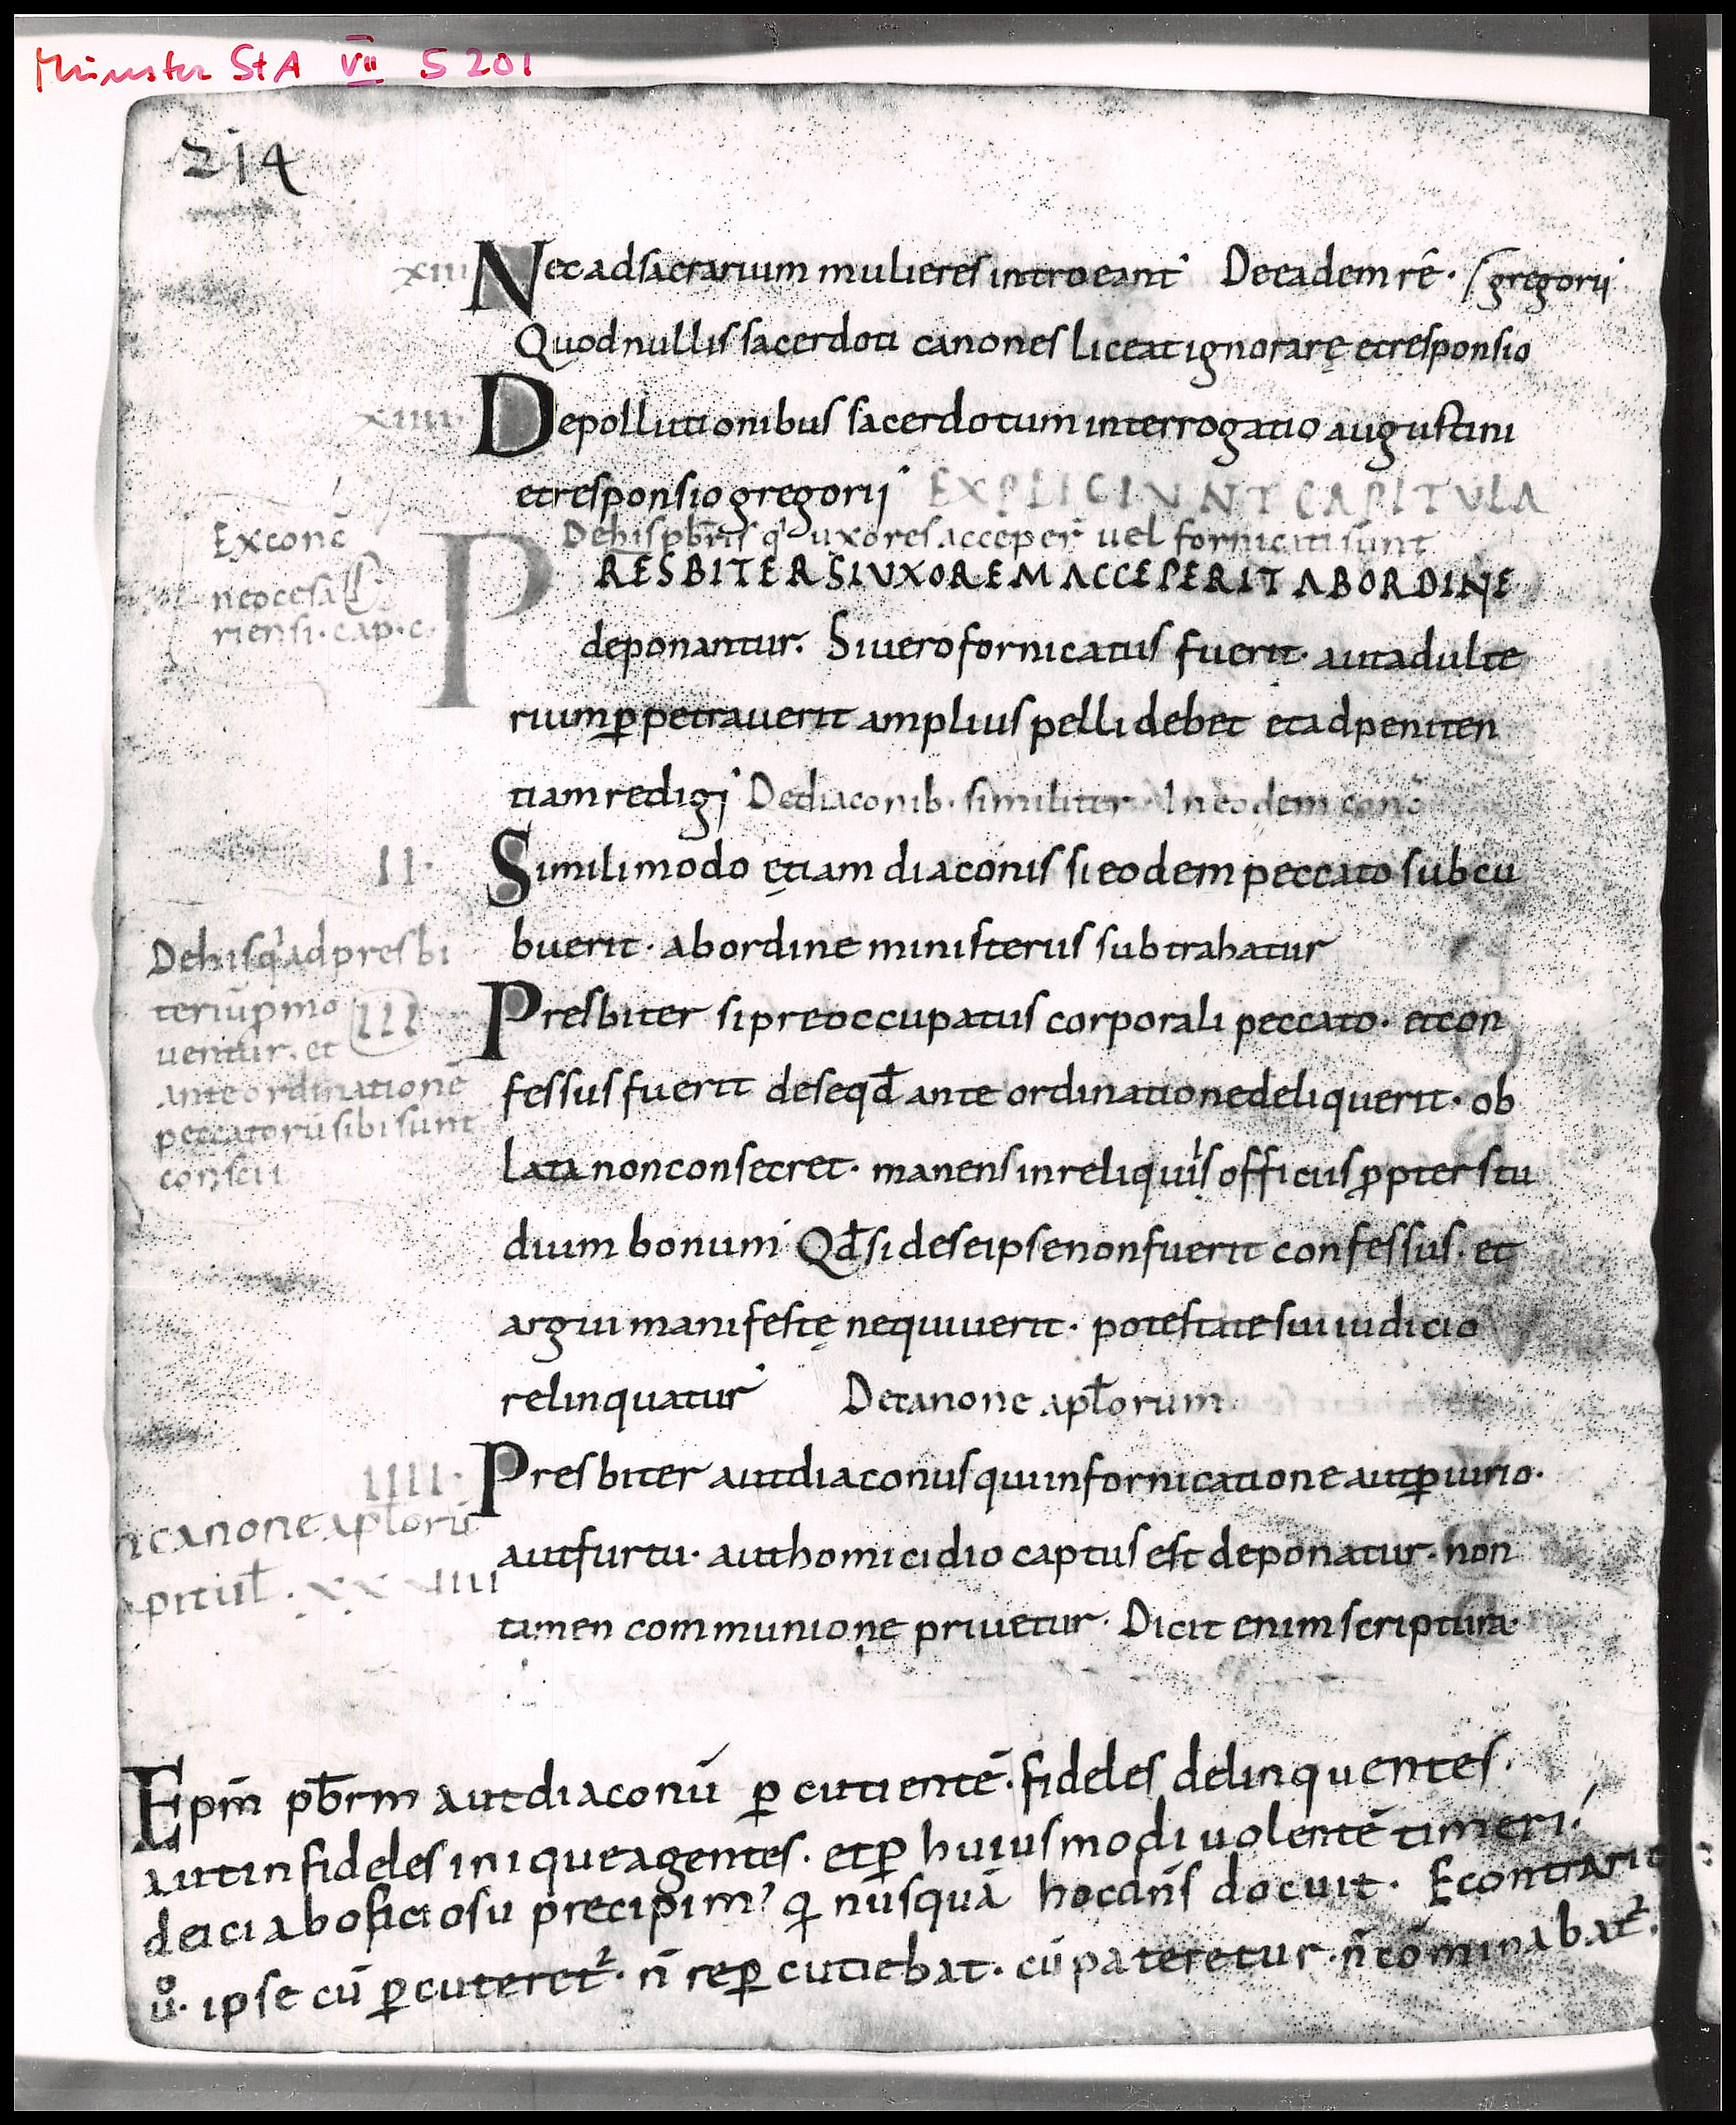 Münster StA VII 5201
214
xiii Nec ad sacrarium mulieres introeant De eadem rē · gregorii
Quod nullis sacerdoti canones liceat ignorarę et responsio
xiiii De pollutionibus sacerdotum interrogatio augustini
et responsio gregorii EXPLICIUNT CAPITULA
De his pb̄ris qⁱ uxores acceper̄ uel fornicati sunt
Ex conc̄
neocesa
riensi · cap · c ·
PRESBITER SI UXOREM ACCEPERIT AB ORDINE
deponantur. Si uero fornicatus fuerit · aut adulte
rium ꝑpetrauerit amplius pelli debet et ad peniten
tiam redigi De diaconib · similiter · In eodem conc̄
II · Simili modo ętiam diaconis si eodem peccato subcu
buerit · ab ordine ministerus subtrahatur
De his qⁱ ad presbi
teriū ꝓmo III
uentur . et
ante ordinationē
peccatorū sibi sunt
conscii
Presbiter si preoccupatus corporali peccato · et con
fessus fuerit de se qđ ante ordinatione deliquerit · ob
lata non consecret · manens in reliquis officiis ꝓpter stu
dium bonum Qđ si de se ipse non fuerit confessus · et
argui manifestę nequiuerit · potestate sui iudicio
relinquatur De canone apłorum
IIII · Presbiter aut diaconus qui in fornicatione aut ꝑiurio ·
n canone apłorū
apitul̄ .
aut furtu · aut homicidio captus est deponatur · non
tamen communionę priuetur · Dicit enim scriptura ·
Epm̄ pb̄rm aut diaconū ꝑcutientē · fideles delinquentes ·
aut infideles inique agentes · et ꝑ huiusmodi uolentē timeri ·
deici ab officio su precipim' q nusquā hoc dn̄s docuit · Econtrario
u̇ͦ · ipse cū ꝑcuteret᷑ · n̄ reꝑcutiebat · cū pateretur · n̄ cōminabat᷑ ·